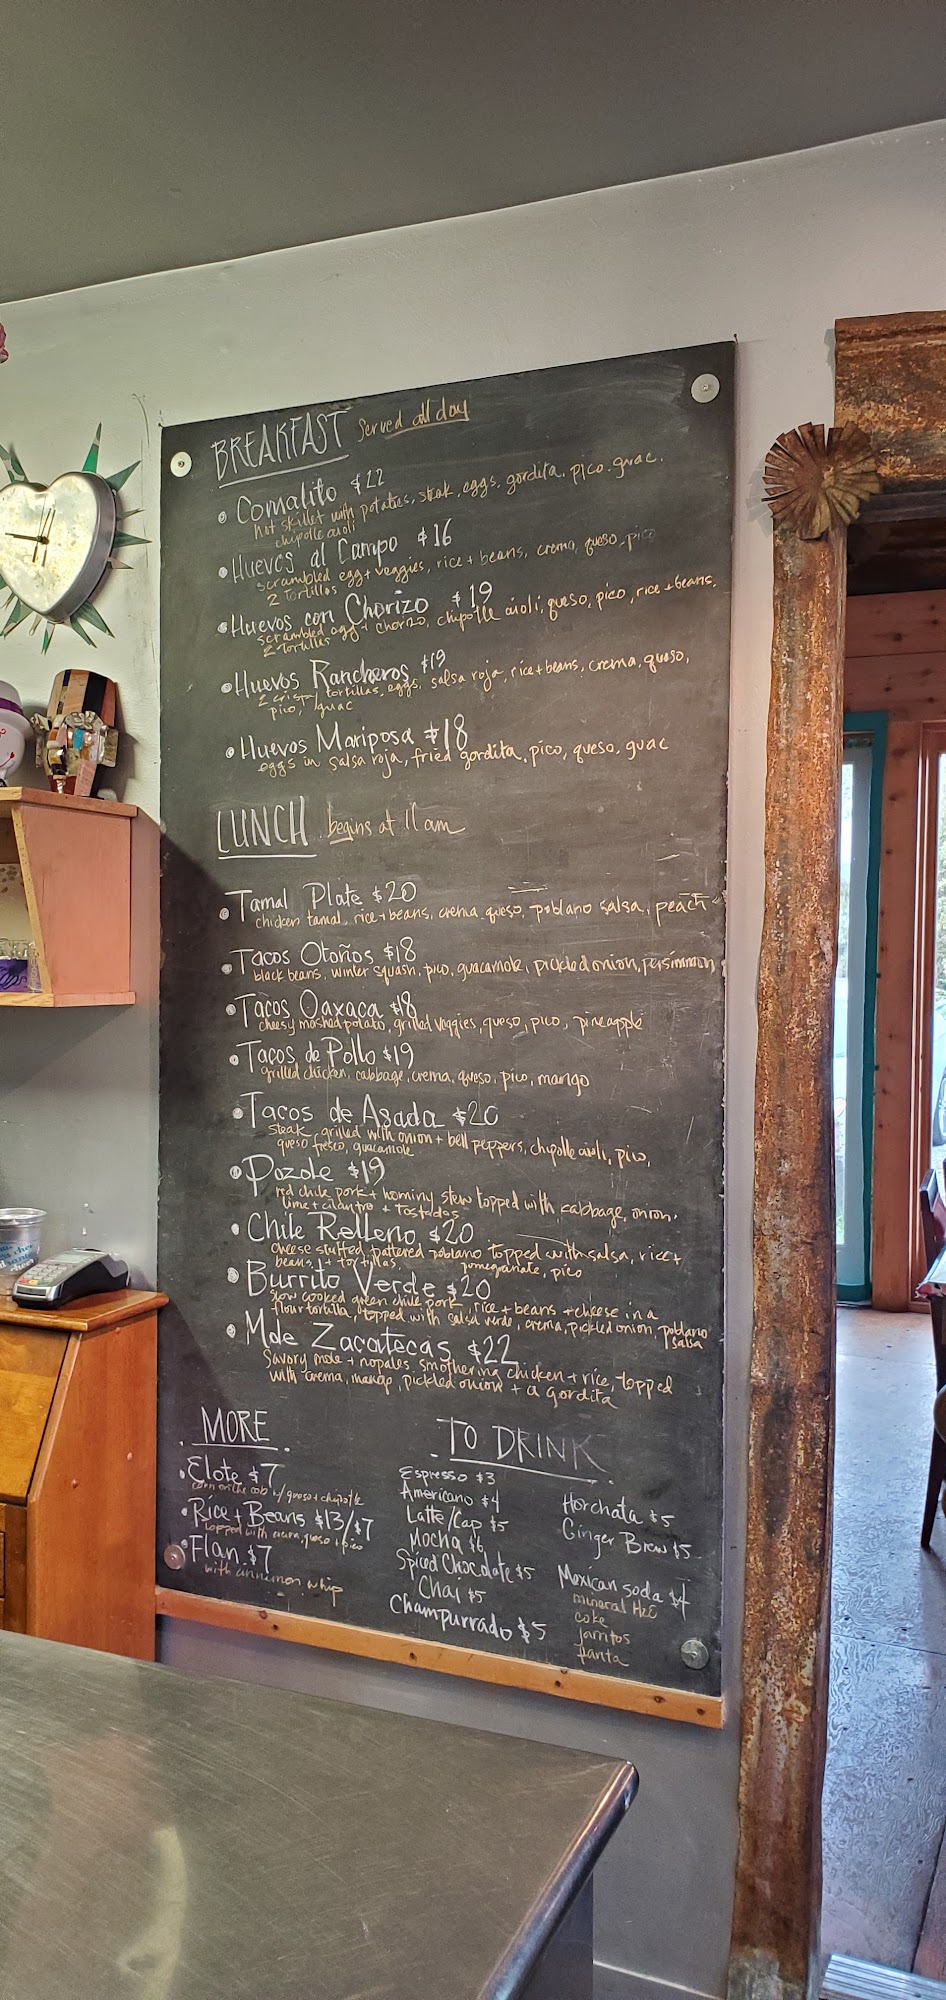 BREAKFAST Served all day
Comalito $22
hot skillet with potatoes, steak, eggs, gordita, pico, guac,
chipotle aioli
Huevos al Campo $16
scrambled egg + veggies, rice + beans, crema, queso, pico
2 tortillas
Huevos con Chorizo $19
scrambled egg + chorizo, chipotle aioli, queso, pico, rice + beans.
2 tortillas
Huevos Rancheros $19
2 crispy tortillas, eggs, salsa roja, rice + beans, crema, queso,
pico, guac
Huevos Mariposa $18
eggs in salsa roja, fried gordita, pico, queso, guac
LUNCH begins at 11am
Tamal Plate $20
chicken tamal, rice + beans, crema, queso, poblano salsa, peach
Tacos Otoños $18
black beans, winter squash, pico, guacamole, pickled onion, persimmon
Tacos Oaxaca $18
cheesy mashed potato, grilled veggies, queso, pico, pineapple
Tacos de Pollo $19
grilled chicken, cabbage, crema, queso, pico, mango
Tacos de Asada $20
steak, grilled with onion + bell peppers, chipotle aioli, pico,
queso fresco, guacamole
Pozole $19
red chile pork + hominy stew topped with cabbage, onion,
lime + cilantro + tostadas
Chile Relleno $20
cheese stuffed, battered poblano topped with salsa, rice +
beans, + tortillas. pomegranate, pico
Burrito Verde $20
slow cooked green chile pork, rice + beans + cheese in a
flour tortilla, topped with salsa verde, crema, pickled onion, poblano
salsa
Mole Zacatecas $22
Savory mole + nopales smothering chicken + rice, topped
with crema, mango, pickled onion + a gordita
MORE
Elote $7
corn on the cob w/ queso + chipotle
Rice + Beans $13/$7
topped with crema, queso + pico
Flan $7
with cinnamon whip
TO DRINK
Espresso $3
Americano $4
Latte/Cap $5
Mocha $6
Spiced Chocolate $5
Chai $5
Champurrado $5
Horchata $5
Ginger Brew $5
Mexican soda $4
mineral H2O
coke
jarritos
fanta